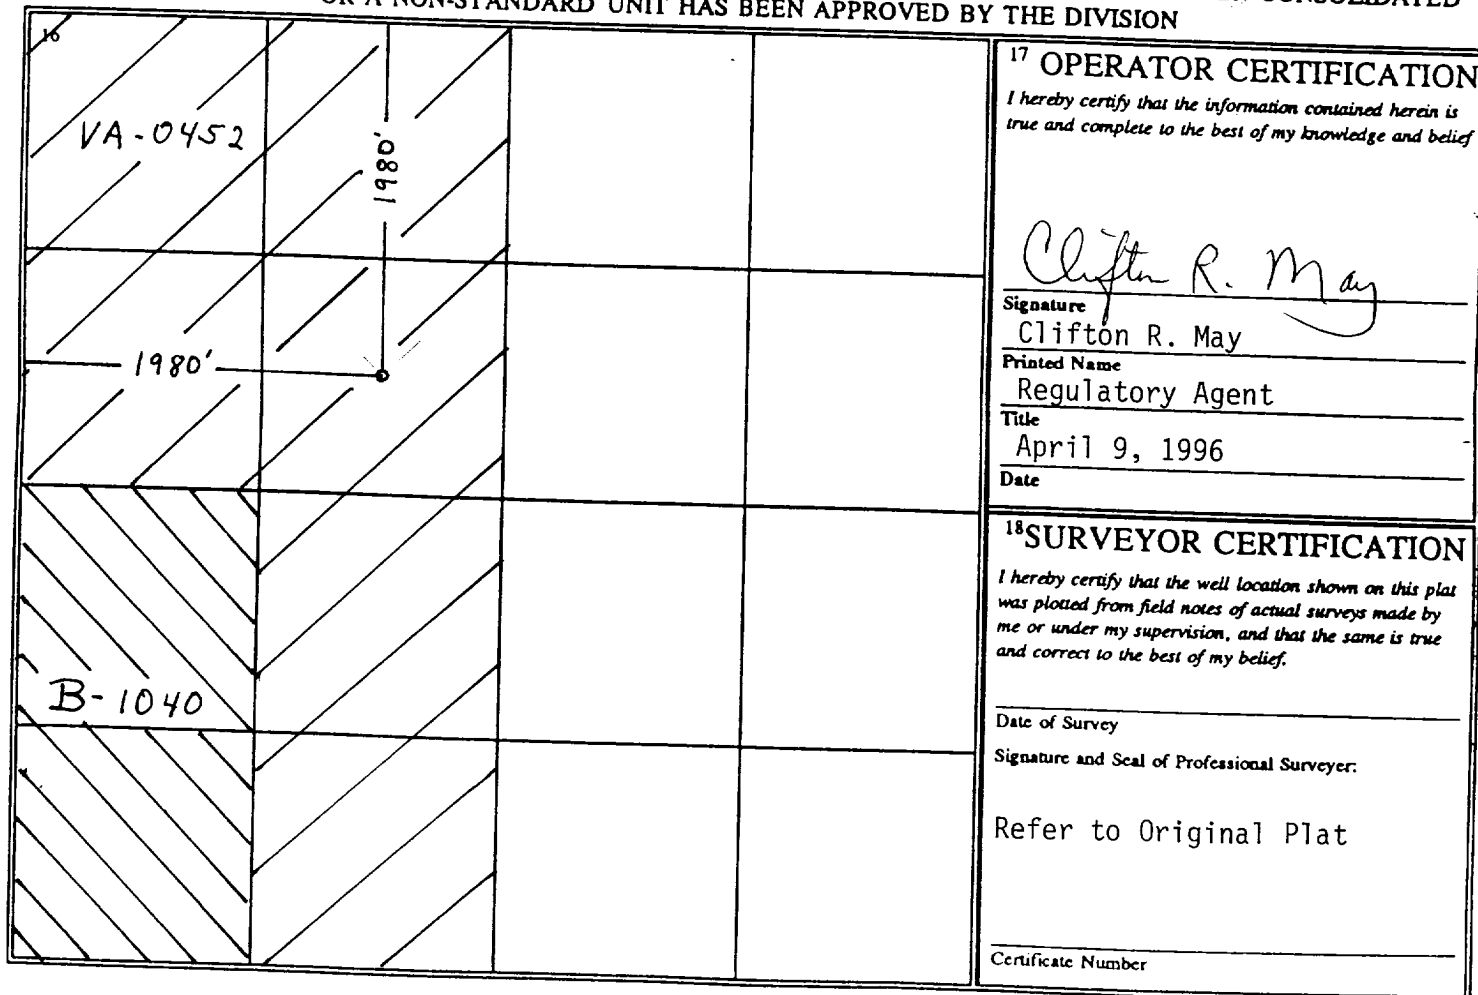 OR A NON-STANDARD UNIT HAS BEEN APPROVED BY THE DIVISION
CONSOLIDATED
16
VA-0452
1980'
1980'
B-1040
17 OPERATOR CERTIFICATION
I hereby certify that the information contained herein is
true and complete to the best of my knowledge and belief
Clifton R. May
Signature
Clifton R. May
Printed Name
Regulatory Agent
Title
April 9, 1996
Date
18 SURVEYOR CERTIFICATION
I hereby certify that the well location shown on this plat
was plotted from field notes of actual surveys made by
me or under my supervision, and that the same is true
and correct to the best of my belief.
Date of Survey
Signature and Seal of Professional Surveyer:
Refer to Original Plat
Certificate Number